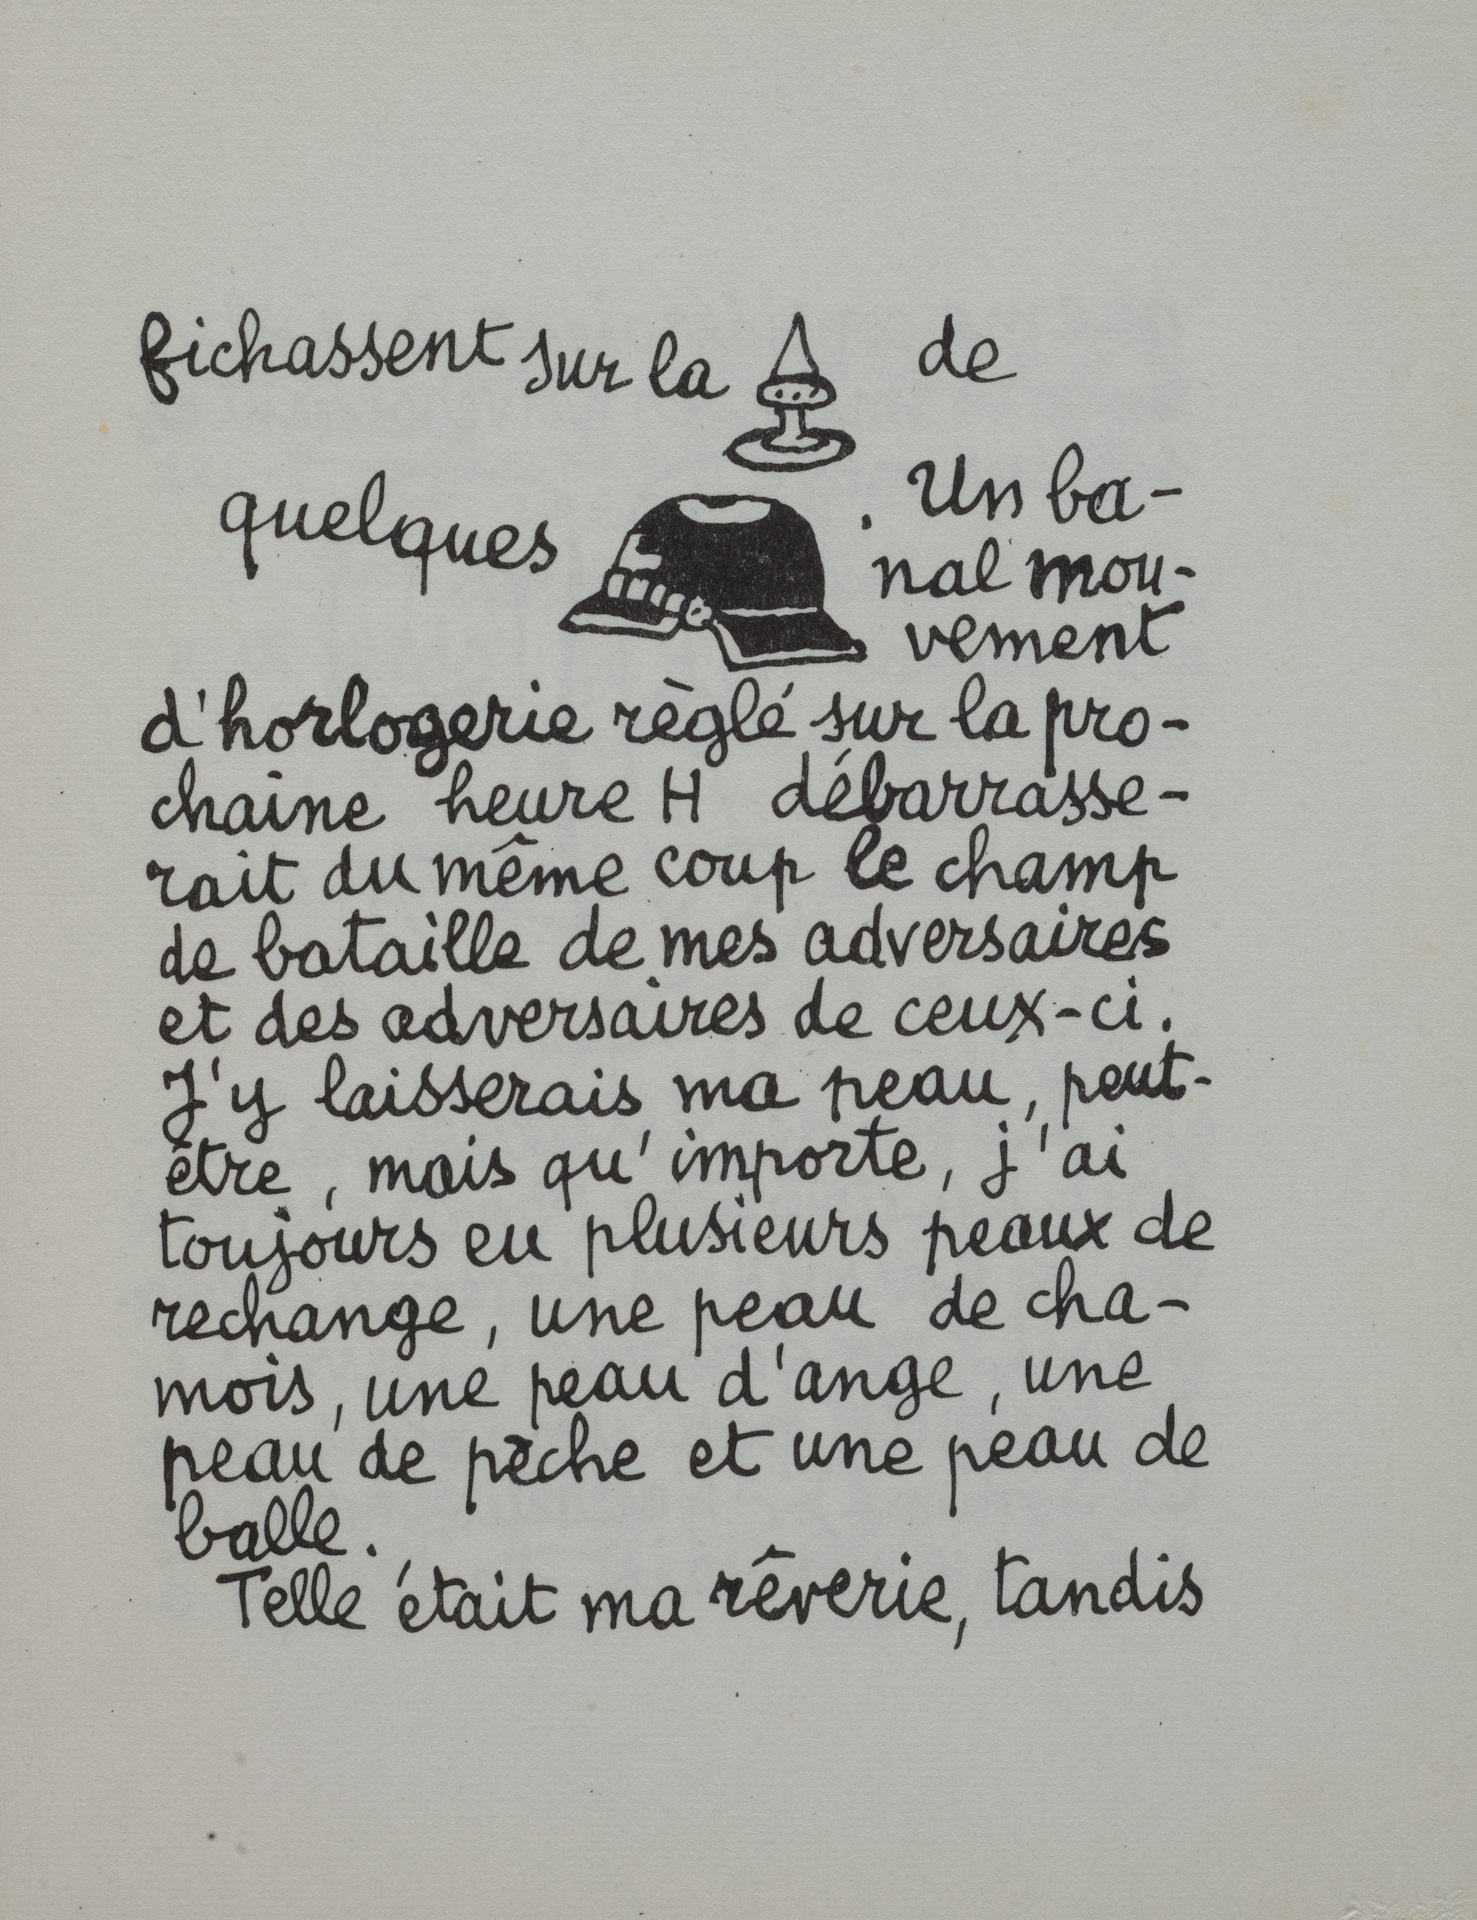 fichassent sur la de
quelques . Un ba-
nal mou-
vement
d'horlogerie règlé sur la pro-
chaine heure H débarrasse-
rait du même coup le champ
de bataille de mes adversaires
et des adversaires de ceux-ci.
J'y laisserais ma peau, peut-
être, mais qu'importe, j'ai
toujours eu plusieurs peaux de
rechange, une peau de cha-
mois, une peau d'ange, une
peau de pêche et une peau de
balle.
Telle était ma rêverie, tandis